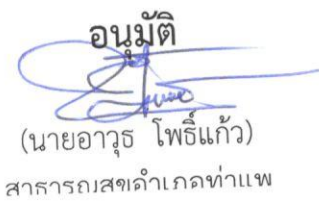 อนุมัติ
(นายอาวุธ โพธิ์แก้ว)
สาธารณสุขอำเภอท่าแพ